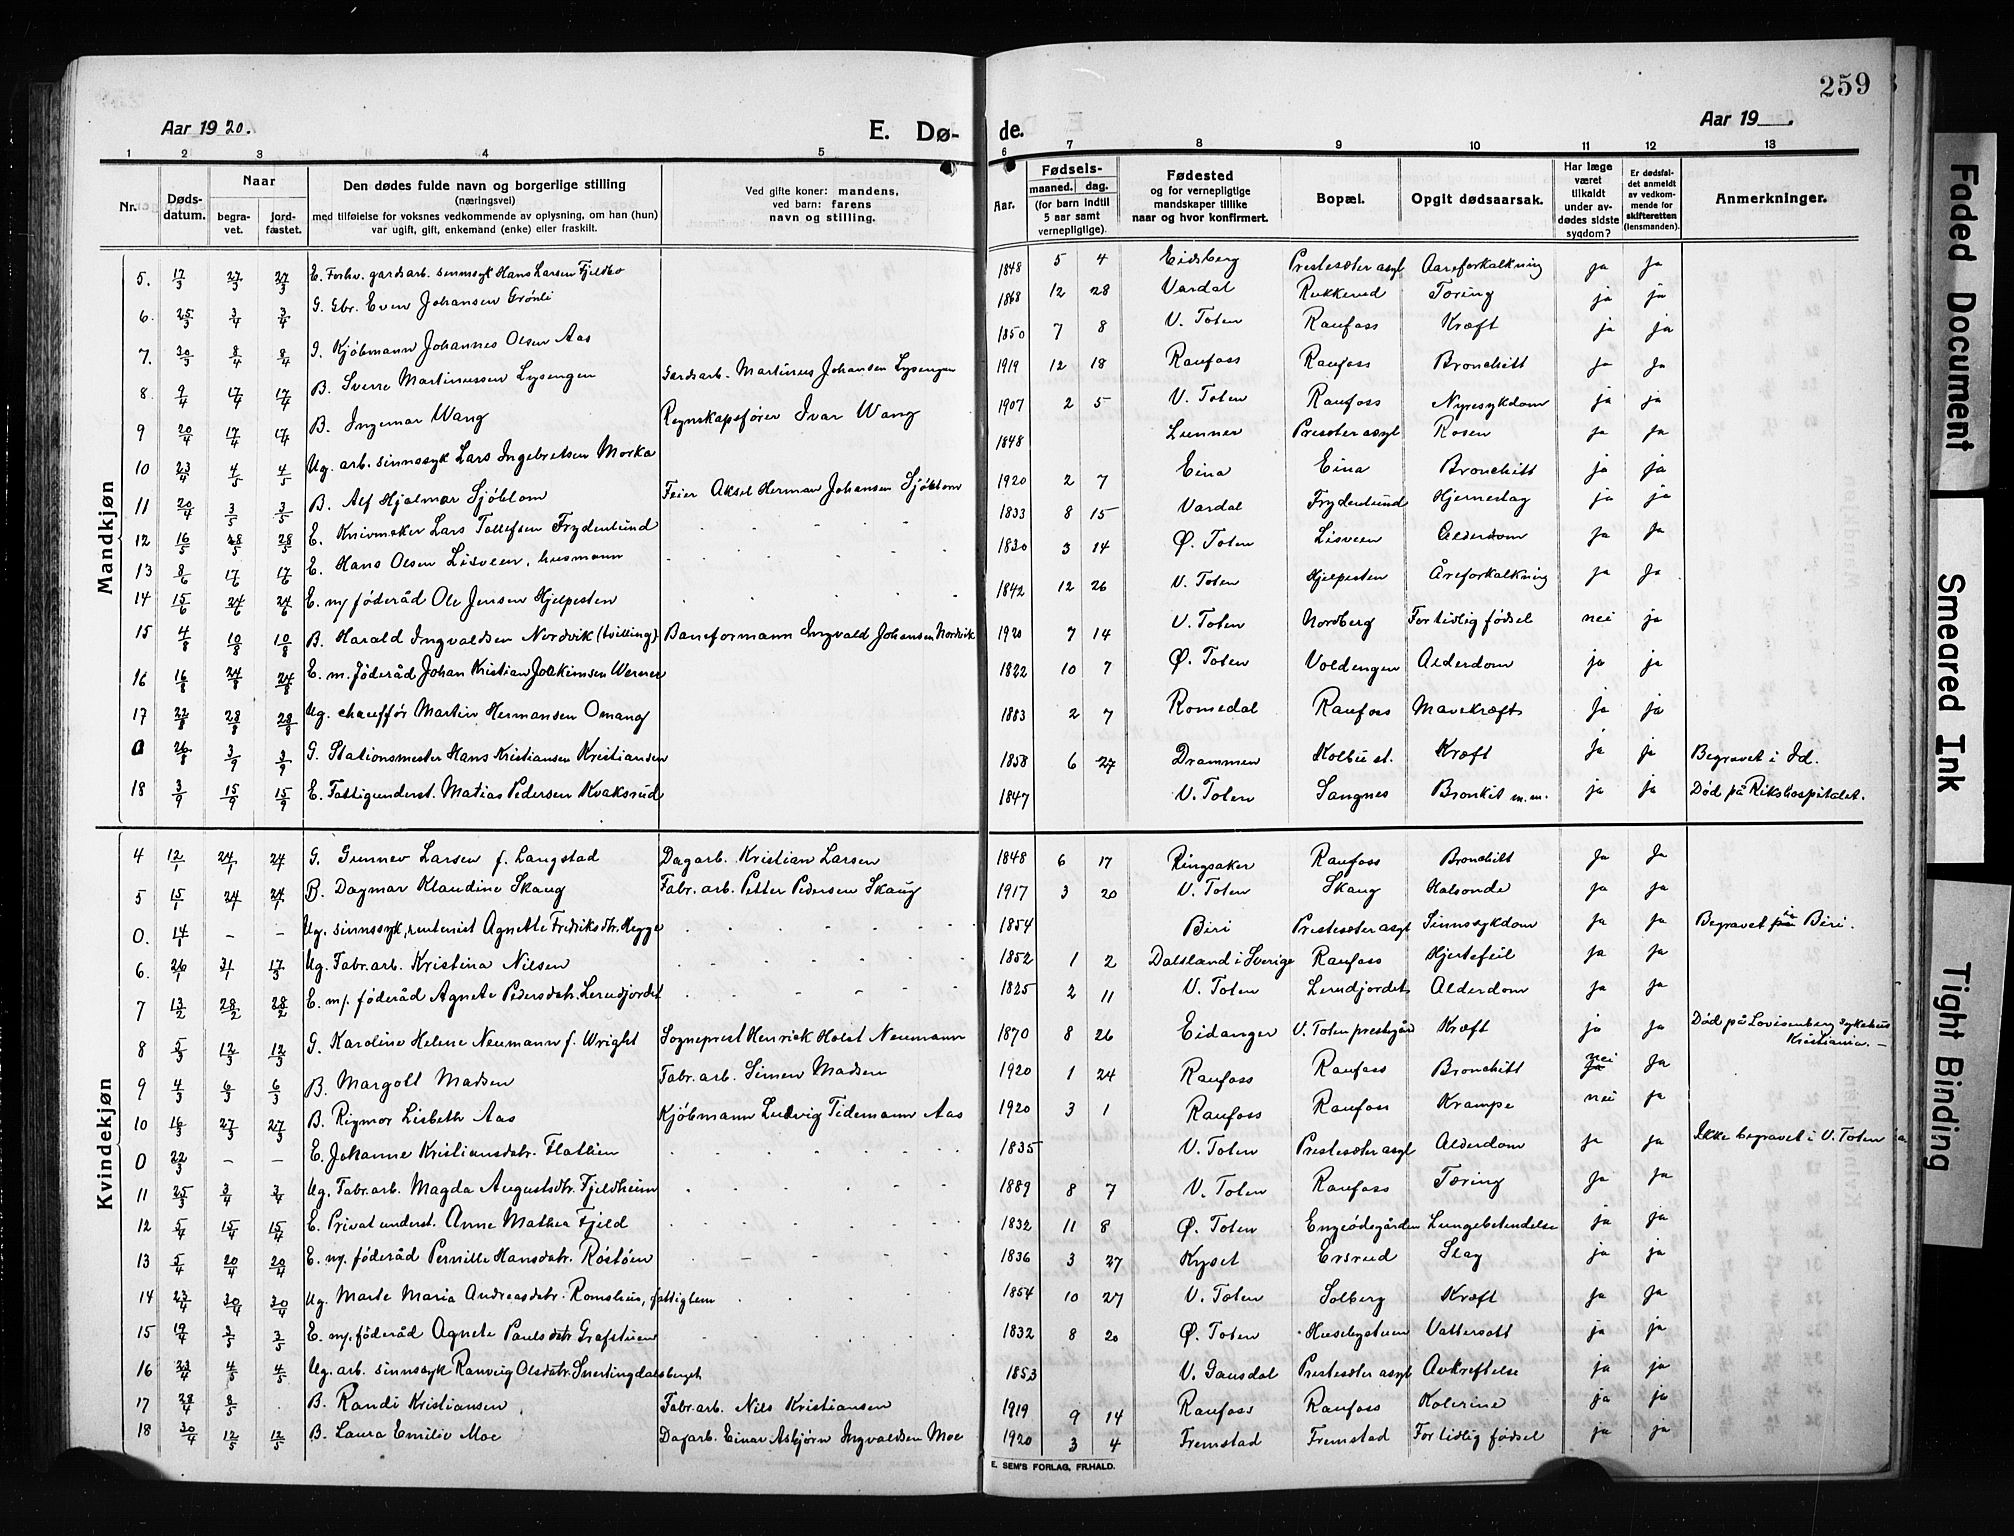 259
Aar 1920. E. Dø- de. Aar 19__.
1 2 3 4 5 6 7 8 9 10 11 12 13
Nr. Døds-datum. Naar begra-vet. jord-fæstet. Den dødes fulde navn og borgerlige stilling (næringsvei) med tilføielse for voksnes vedkommende av oplysning, om han (hun) var ugift, gift, enkemand (enke) eller fraskilt. Ved gifte koner: mandens, ved barn: farens navn og stilling. Aar. Fødsels- maaned. dag. (for barn indtil 5 aar samt vernepligtige). Fødested og for vernepligtige mandskaper tillike naar og hvor konfirmert. Bopæl. Opgit dødsaarsak. Har læge været tilkaldt under av-dødes sidste sygdom? Er dødsfal-det anmeldt av vedkom-mende for skifteretten (lensmanden). Anmerkninger.
Mandkjøn
5. 17/3 27/3 27/3 E. Forhv. gardsarb. sinnssyk Hans Larsen Fjeldbo 1848 5 4 Eidsberg Prestesæter asyl Aareforkalkning ja ja
6. 25/3 3/4 3/4 G. Gbr. Even Johansen Grønli 1868 12 28 Vardal Rukkerud Tæring ja ja
7. 30/3 8/4 8/4 G. Kjøbmann Johannes Olsen Aas 1850 7 8 V. Toten Raufoss Kræft ja ja
8 9/4 17/4 17/4 B. Sverre Martinussen Lysengen Gardsarb. Martinus Johansen Lysengen 1919 12 18 Raufoss Raufoss Bronchitt ja ja
9 20/4 17/4 17/4 B. Ingemar Wang Regnskapsfører Ivar Wang 1907 2 5 V. Toten Raufoss Nyresykdom ja ja
10 23/4 4/5 4/5 Ug. arb. sinnssyk Lars Ingebretsen Morka 1848 Lunner Presæter asyl Rosen ja ja
11 20/4 3/5 3/5 B. Alf Hjalmar Sjöblom Feier Aksel Herman Johansen Sjöblom 1920 2 7 Eina Eina Bronchitt ja ja
12 16/5 28/5 28/5 E. Knivmaker Lars Tollefsen Frydenlund 1833 8 15 Vardal Frydenlund Hjerneslag ja ja
13 8/6 17/6 17/6 E. Hans Olsen Lisveen, husmann 1830 3 14 Ø. Toten Lisveen Alderdom ja ja
14 15/6 24/6 24/6 E. m/ föderåd Ole Jensen Hjelpesten 1842 12 26 V. Toten Hjelpesten Åreforkalkning ja ja
15 4/8 10/8 10/8 B. Harald Ingvaldsen Nordvik (tvilling) Baneformann Ingvald Johansen Nordvik 1920 7 14 V. Toten Nordberg For tidlig födsel nei ja
16 16/8 24/8 24/8 E. m. föderåd Johan Kristian Joakimsen Werner 1822 10 7 Ø. Toten Voldengen Alderdom ja ja
17 22/8 28/8 28/8 Ug. chauffør Martin Hermansen Omang 1883 2 7 Romedal Raufoss Mavekræft ja ja
0 26/8 3/9 3/9 G. Stationsmester Hans Kristiansen Kristiansen 1858 6 27 Drammen Kolbu st. Kræft ja ja Begravet i Id.
18 3/9 15/9 15/9 E. Fattigunderst. Matias Pedersen Kvaksrud 1847 V. Toten Sangnes Bronkit m.m. ja ja Død på Rikshospitalet.
Kvindekjøn
4 12/1 24/1 24/1 G. Gunnev Larsen f. Langstad Dagarb. Kristian Larsen 1848 6 17 Ringsaker Raufoss Bronchitt ja ja
5 15/1 24/1 24/1 B. Dagmar Klaudine Skaug Fabr. arb. Petter Pedersen Skaug 1917 3 20 V. Toten Skaug Halsonde ja ja
0. 14/1 - - Ug. sinnssyk, rentenist Agnette Fredriksdtr. Hegge 1854 Biri Prestesæter asyl Sinnssykdom ja ja Begravet på i Biri.
6. 26/1 31/1 17/3 Ug. Fabr. arb. Kristina Nilsen 1852 1 2 Dalsland i Sverige Raufoss Hjertefeil ja ja
7 13/2 28/2 28/2 E. m/ föderåd Agnete Pedersdtr. Lerudjordet 1825 2 11 V. Toten Lerudjordet Alderdom ja ja
8 5/3 12/3 12/3 G. Karoline Helene Neumann f. Wright Sogneprest Henrick Holst Neumann 1870 8 26 Eidanger V. Toten prestegård Kræft ja ja Død på Lovisenberg sykehus Kristiania.-
9 4/3 6/3 6/3 B. Margott Madsen Fabr. arb. Simen Madsen 1920 1 24 Raufoss Raufoss Bronchitt ja nei ja
10 16/3 27/3 27/3 B. Rigmor Lisbeth Aas Kjöbmann Ludvig Tidemann Aas 1920 3 1 Raufoss Raufoss Krampe nei ja
0 22/3 - - E. Johanne Kristiansdtr. Flatlien 1835 V. Toten Prestesæter asyl Alderdom ja ja Ikke begravet i V. Toten
11 25/3 3/4 3/4 Ug. Fabr. arb. Magda Augustsdtr. Fjeldheim 1889 8 7 V. Toten Raufoss Tæring ja ja
12 5/4 15/4 15/4 E. Privat underst. Anne Mathea Fjeld 1832 11 8 Ø. Toten Engeödegården Lungebetendelse ja ja
13 5/4 20/4 20/4 E. m/ föderåd Pernille Hansdatr. Röstöen 1836 3 27 Kyset Ersrud Slag ja ja
14 23/4 30/4 30/4 Ug. Marte Maria Andreasdatr. Romslius, fattiglem 1854 10 27 V. Toten Solberg Kræft ja ja
15 19/4 3/5 3/5 E. m/ föderåd Agnete Paulsdatr Grafstuen 1832 8 20 Ø. Toten Husebystuen Vattersott ja ja
16 23/4 4/5 4/5 Ug. arb. sinnssyk Ranveig Olsdatr. Snertingdalsberget 1853 V. Gausdal Prestesæter asyl Avkreftelse ja ja
17 28/4 8/5 B. Randi Kristiansen Fabr. arb. Nils Kristiansen 1919 9 14 Raufoss Raufoss Kolerine ja ja
18 30/4 12/5 12/5 B. Laura Emilie Moe Dagarb. Einar Asbjørn Ingvaldsen Moe 1920 3 4 Fremstad Fremstad For tidlig födsel ja ja
E. SEM'S FORLAG, FR.HALD.
Faded Document
Smeared Ink
Tight Binding